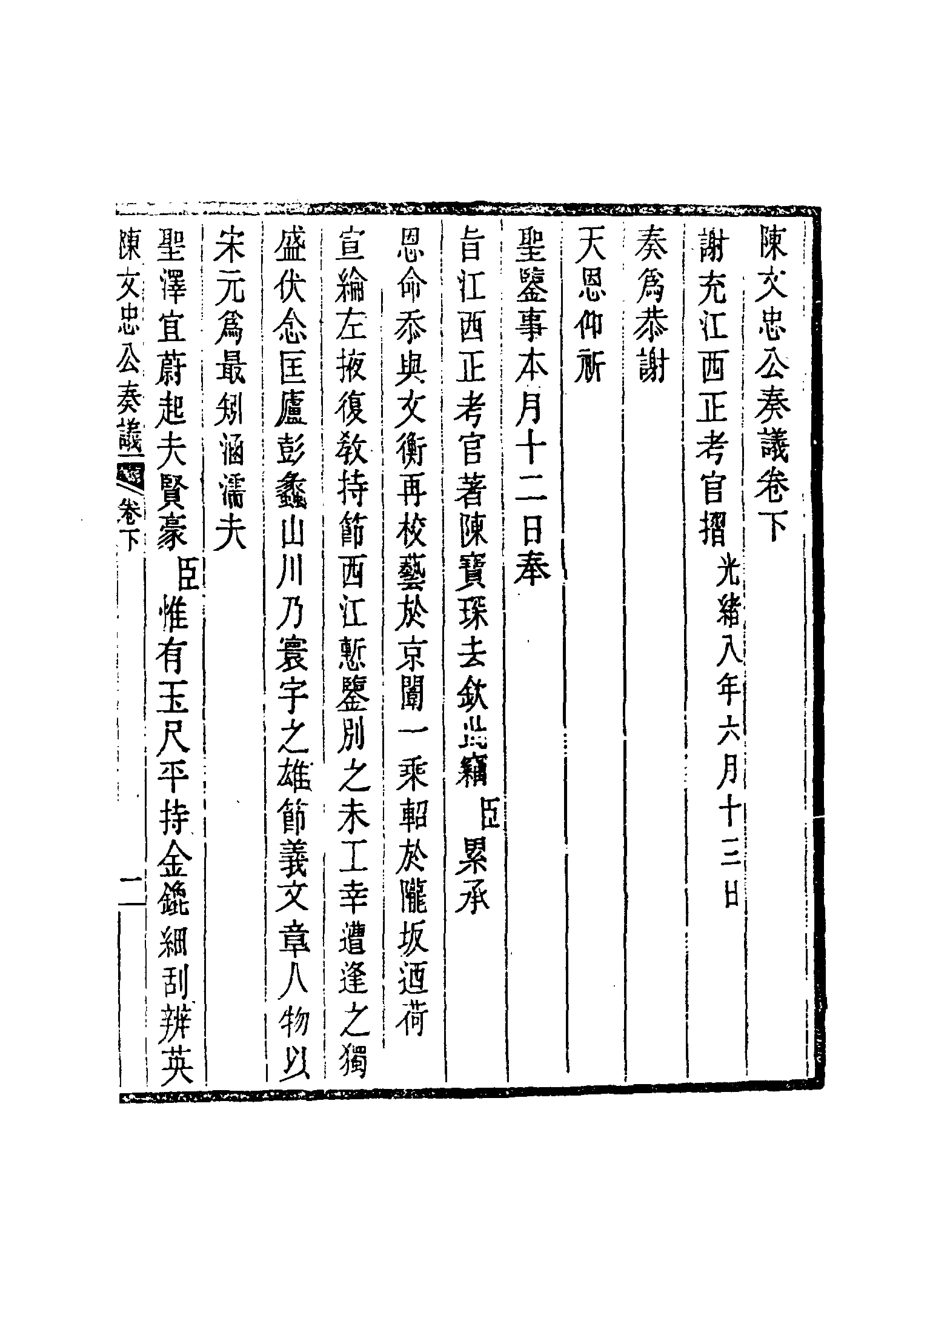 陳文忠公奏議卷下
謝充江西正考官摺光緒八年六月十三日
奏爲恭謝
天恩仰祈
聖鑒事本月十二日奉
旨江西正考官著陳寶琛去欽此竊臣累承
恩命忝與文衡再校藝於京闈一乘軺於隴坂迺荷
宣綸左掖復敎持節西江慙鑒別之未工幸遭逢之獨
盛伏念匡廬彭蠡山川乃寰宇之雄節義文章人物以
宋元爲最矧涵濡夫
聖澤宜蔚起夫賢豪臣惟有玉尺平持金鎞細刮辨英
陳文忠公奏議 卷下 二